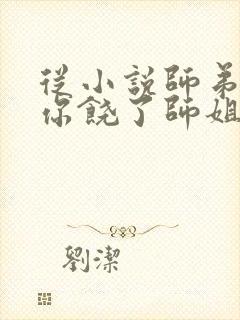 從小說師弟
你饒了師姐
劉潔